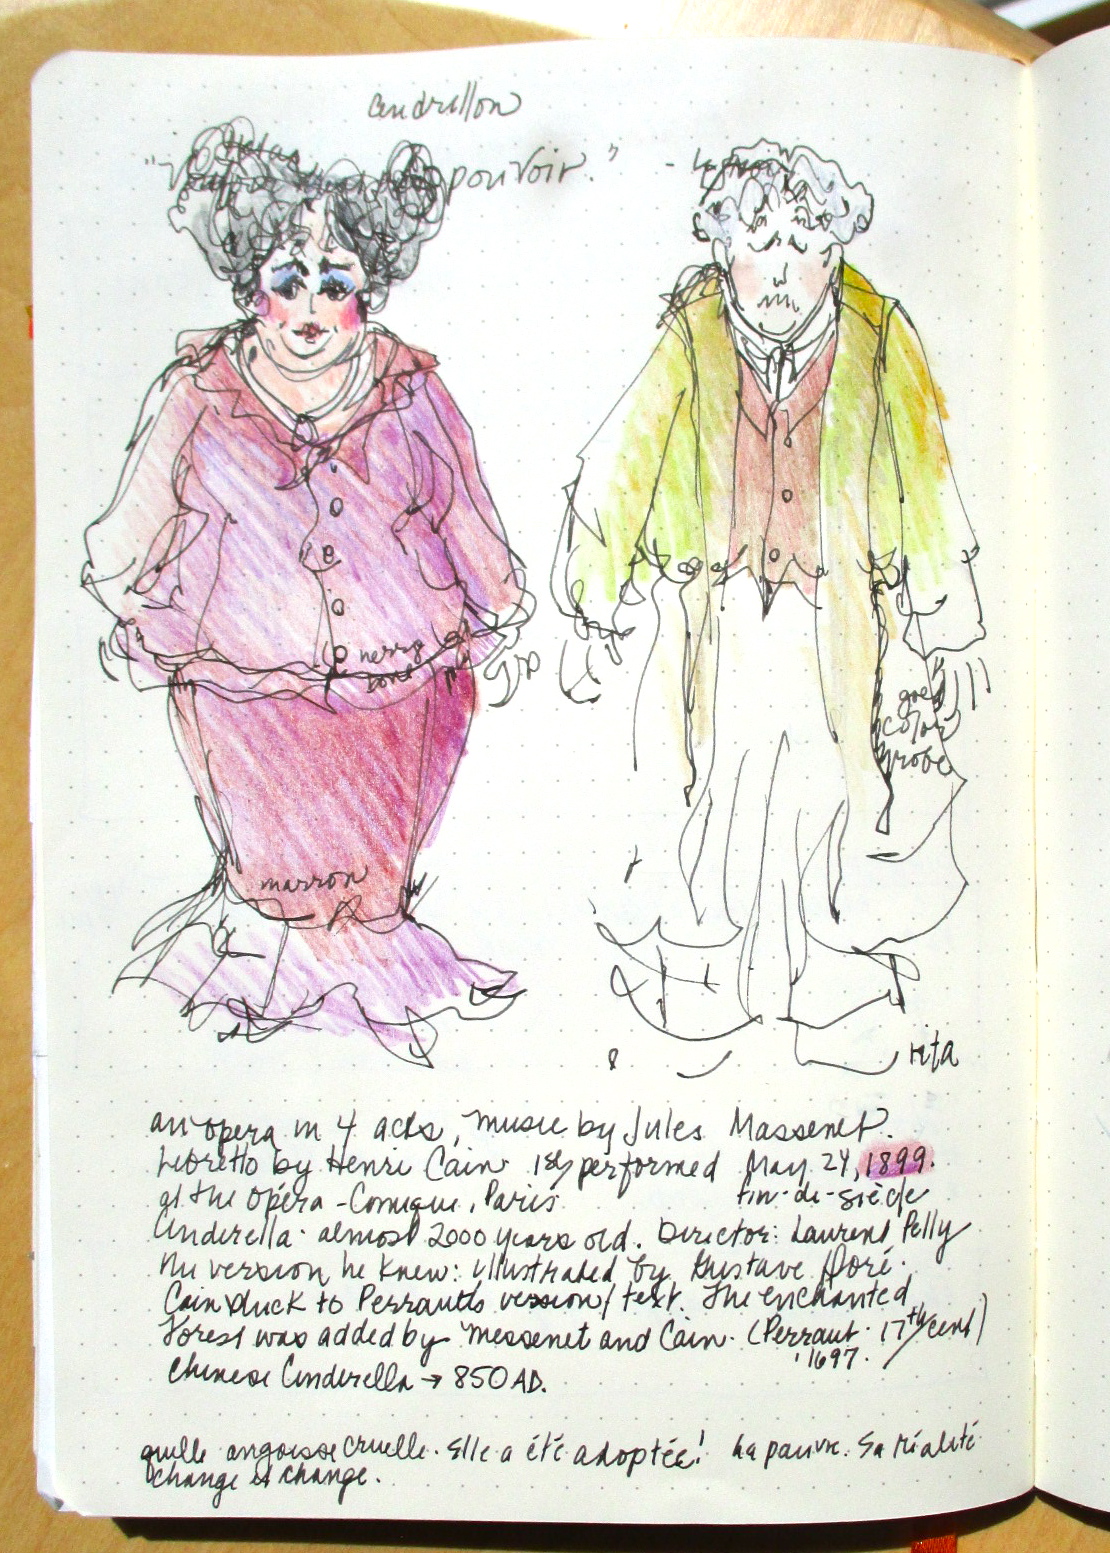 Cendrillon
"
pouvoir."
herring
bone
grey
color
robe
marron
rita
an opera in 4 acts, music by Jules Massenet.
Libretto by Henri Cain 1st performed May 24, 1899.
at the Opéra-Comique, Paris fin-de-siècle
Cinderella: almost 2000 years old. Director: Laurent Pelly
The version he knew: illustrated by Gustave Doré.
Cain stuck to Perrault's version/text. The enchanted
Forest was added by Messenet and Cain. (Perraut. 17th cent)
1697.
Chinese Cinderella → 850 AD.
quelle angoisse cruelle. Elle a été adoptée! La pauvre. Sa réalité
change et change.